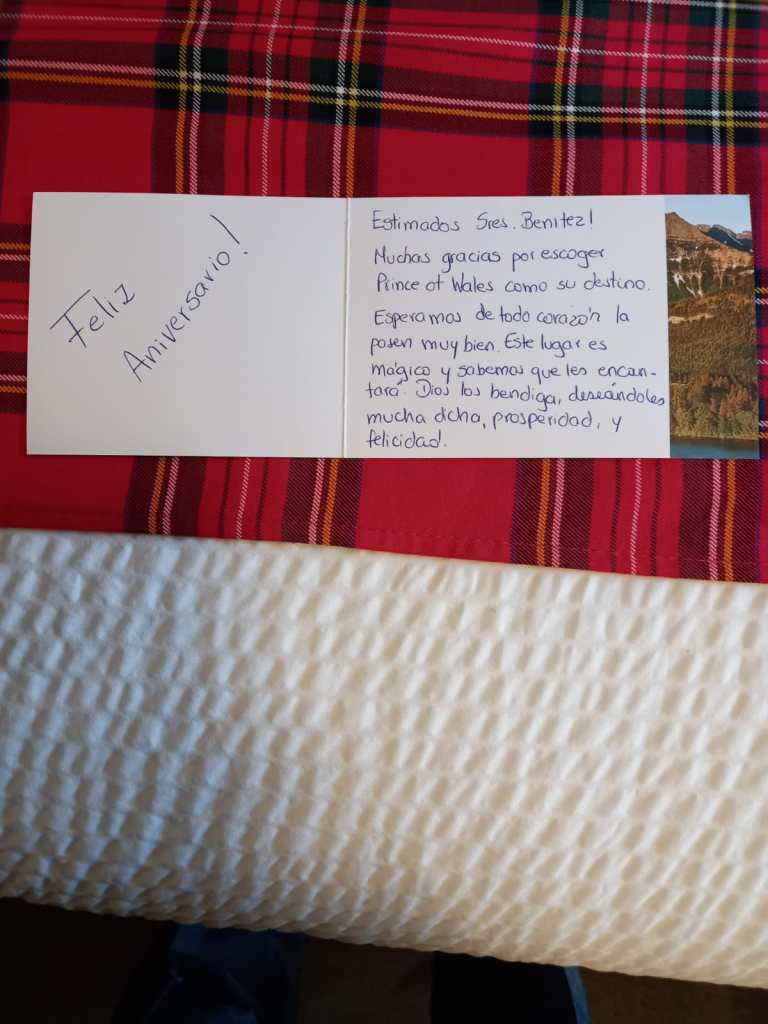 Feliz
Aniversario!
Estimados Sres. Benitez!
Muchas gracias por escoger
Prince of Wales como su destino.
Esperamos de todo corazón la
pasen muy bien. Este lugar es
mágico y sabemos que les encan-
tará. Dios los bendiga, deseándoles
mucha dicha, prosperidad, y
felicidad!